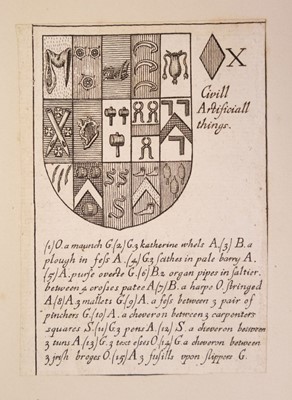 X
Civill
Artificiall
things.
(1) O. a maunch G. (2) G. 3 katherine whels A. (3) B. a
plough in fess A. (4) G. 3 seithes in pale barry A.
(5) A. purse overte G. (6) B. 2 organ pipes in saltier.
between 4 crosses patee A (7) B. a harpe O. stringed
A (8) A 3 mallets G (9) A. a fess between 3 pair of
pinchers G. (10) A. a cheveron between 3 carpenters
squares S. (11) G 3 pens A. (12) S. a cheveron between
3 tuns A. (13) G. 3 text esses O. (14) G a cheveron between
3 jrish broges O. (15) A 3 fusills upon slippers G.